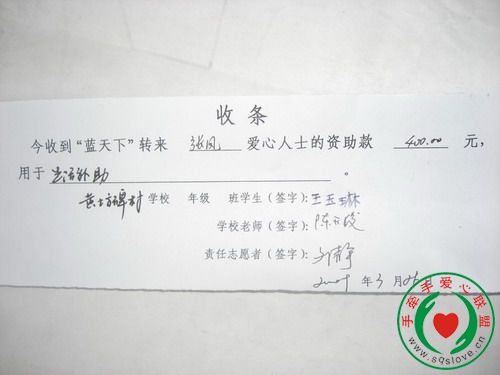 收条
今收到“蓝天下”转来 张凤 爱心人士的资助款 400.00 元，
用于 生活补助 。
黄土 学校 年级 班学生（签字）：王玉琳
学校老师（签字）：陈
责任志愿者（签字）：刘静
年 月
手牵手爱心联盟
www.sqslove.cn